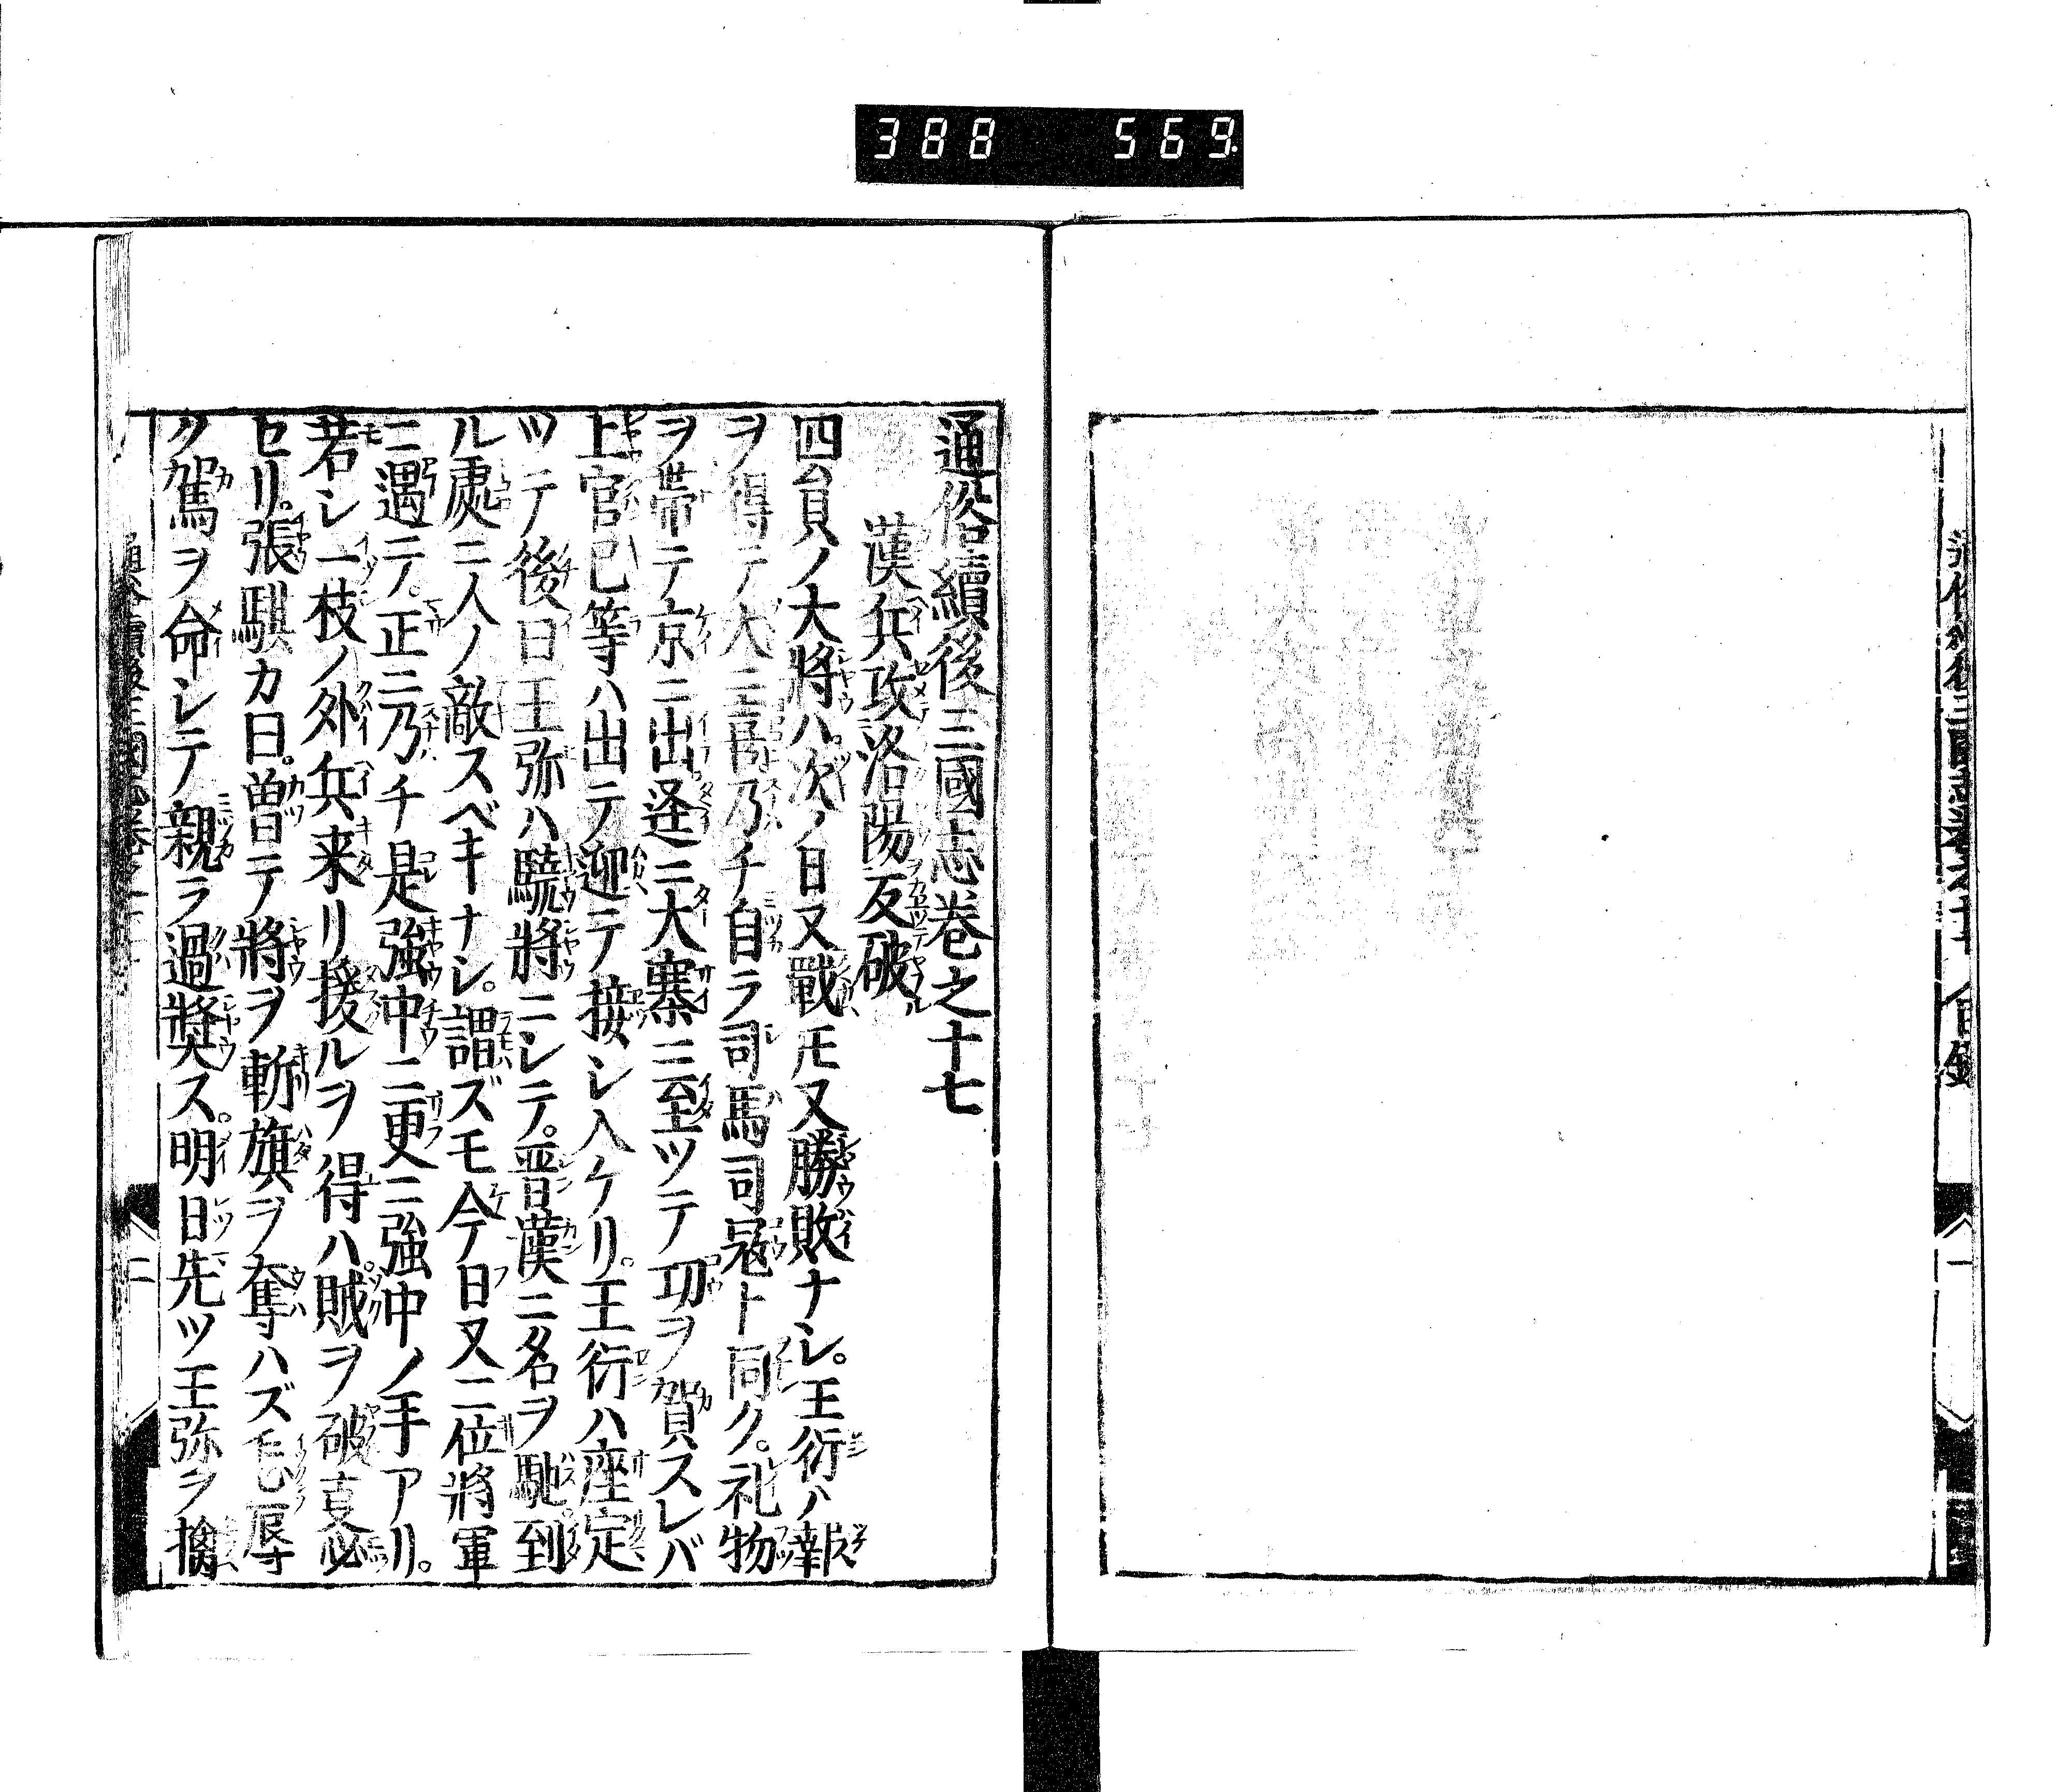 388 569
通俗續後三國志卷之十七
漢兵攻洛陽反破
四員ノ大將ハ。次ノ日又戰モ又勝敗ナシ。王衍ハ報
ヲ得テ大ニ乃チ自ラ司馬司冦ト同ク。礼物
ヲ帶テ京ニ出逢ニ大寨ニ至ツテ功ヲ賀スレバ
上官巳等ハ出テ迎テ接シ入ケリ。王衍ハ座定
ツテ後日王弥ハ驍將ニシテ。晋漢ニ名ヲ馳到
ル處ニ人ノ敵スベキナシ。謂ズモ今日又二位將軍
ニ遇テ。正ニ乃チ是強中ニ更ニ強中ノ手アリ。
若シ一枝ノ外兵来リ援ルヲ得ハ。賊ヲ破支必
セリ。張騏カ曰。曽テ將ヲ斬旗ヲ奪ハズ辱
ク駕ヲ命シテ親ラ過奬ス。明日先ツ王弥ヲ擒
二
一